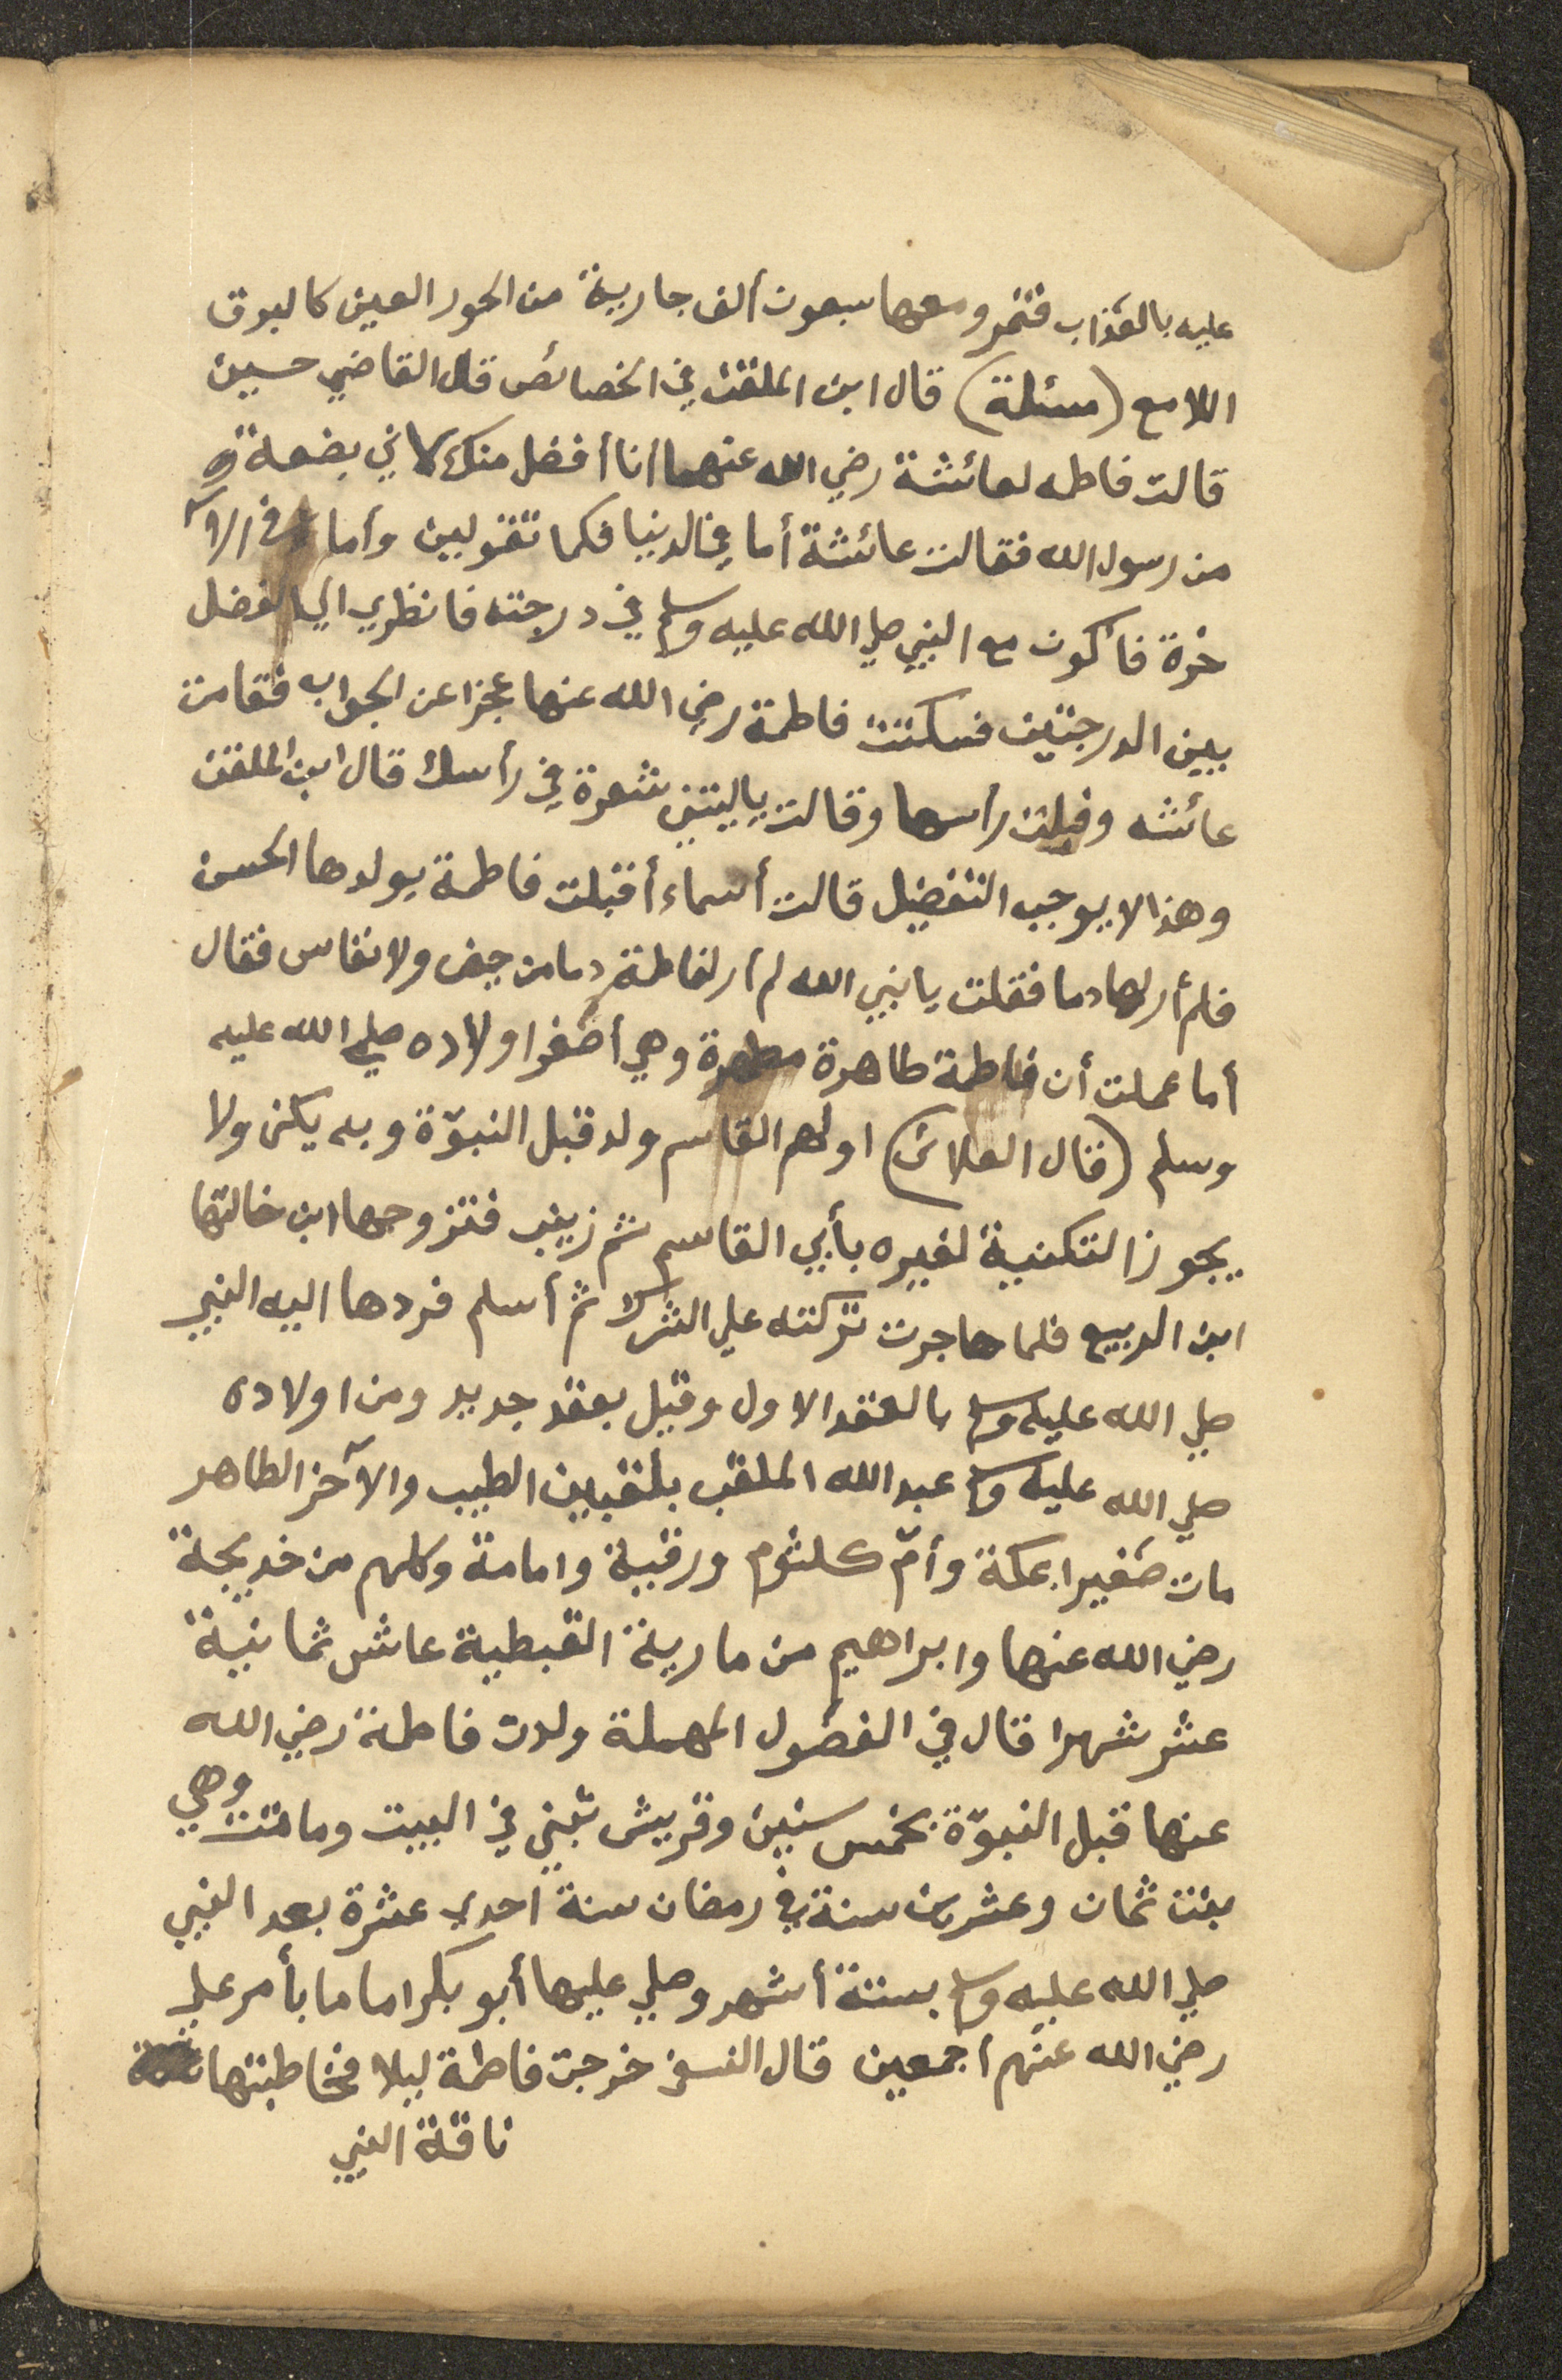 عليه بالعذاب فتمر ومعها سبعون ألف جارية من الحور العين كالبرق
اللامع (مسئلة) قال ابن الملقن في الخصائص قال القاضي حسين
قالت فاطمه لعائشة رضي الله عنهما أنا أفضل منك لاني بضعة
من رسول الله فقالت عائشة أما في الدنيا فكما تقولين وأما في الآ
خرة فأكون مع النبي صلي الله عليه وسلم في درجته فانظري الي الفضل
بين الدرجتين فسكتت فاطمة رضي الله عنها عجزا عن الجواب فقامت
عائشه وقبلت راسها وقالت ياليتني شعرة في رأسك قال ابن الملقن
وهذا لا يوجب التفضيل قالت أسماء أقبلت فاطمة بولدها الحسن
فلم أر لها دما فقلت يا نبي الله لم أر لفاطمة دما من حيض ولا نفاس فقال
أما عملت أن فاطمة طاهرة مطهرة وهي أصغر اولاده صلي الله عليه
وسلم (قال العلائ) اولهم القاسم ولد قبل النبوّة وبه يكنى ولا
يجوز التكنية لغيره بأبي القاسم ثم زينب فتزوجها ابن خالتها
ابن الربيع فلما هاجرت تركته علي الشرك ثم أسلم فردها اليه النبي
صلي الله عليه وسلم بالعقد الاول وقيل بعقد جديد ومن اولاده
صلي الله عليه وسلم عبد الله الملقب بلقبين الطيب والآخر الطاهر
مات صغيرا بمكة وأمّ كلثوم ورقية وامامة وكلهم من خديجة
رضي الله عنها وابراهيم من مارية القبطية عاش ثمانية
عشر شهرا قال في الفصول المهملة ولدت فاطمة رضي الله
عنها قبل النبوّة بخمس سنين وقريش تبني في البيت وماتت وهي
بنت ثمان وعشرين سنة في رمضان سنة احدى عشرة بعد النبي
صلي الله عليه وسلم بستة أشهر وصلي عليها أبو بكر اماما بأمر علي
رضي الله عنهم أجمعين قال النسفي خرجت فاطمة ليلا فخاطبتها
ناقة النبي